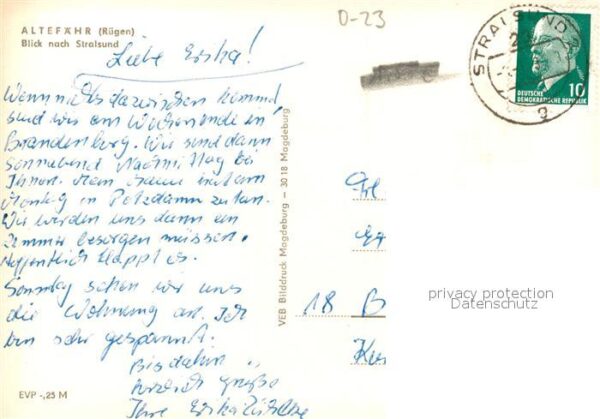 ALTEFÄHR (Rügen)
Blick nach Stralsund
D-23
Liebe Erika!
Wenn nichts dazwischen kommt,
sind wir am Wochenende in
Brandenburg. Wir sind dann
Sonnabend Nachmittag bei
Ihnen. Mein Mann hat am
Montag in Potsdam zu tun.
Wir werden uns dann ein
Zimmer besorgen müssen.
Hoffentlich klappt es.
Sonntag sehen wir uns
die Wohnung an. Ich
bin sehr gespannt.
Bis dahin
herzlich Grüße
Ihre Erika
EVP -,25 M
VEB Bilddruck Magdeburg - 30 18 Magdeburg
STRALSUND
10
DEUTSCHE
DEMOKRATISCHE REPUBLIK
g
18 B
privacy protection
Datenschutz